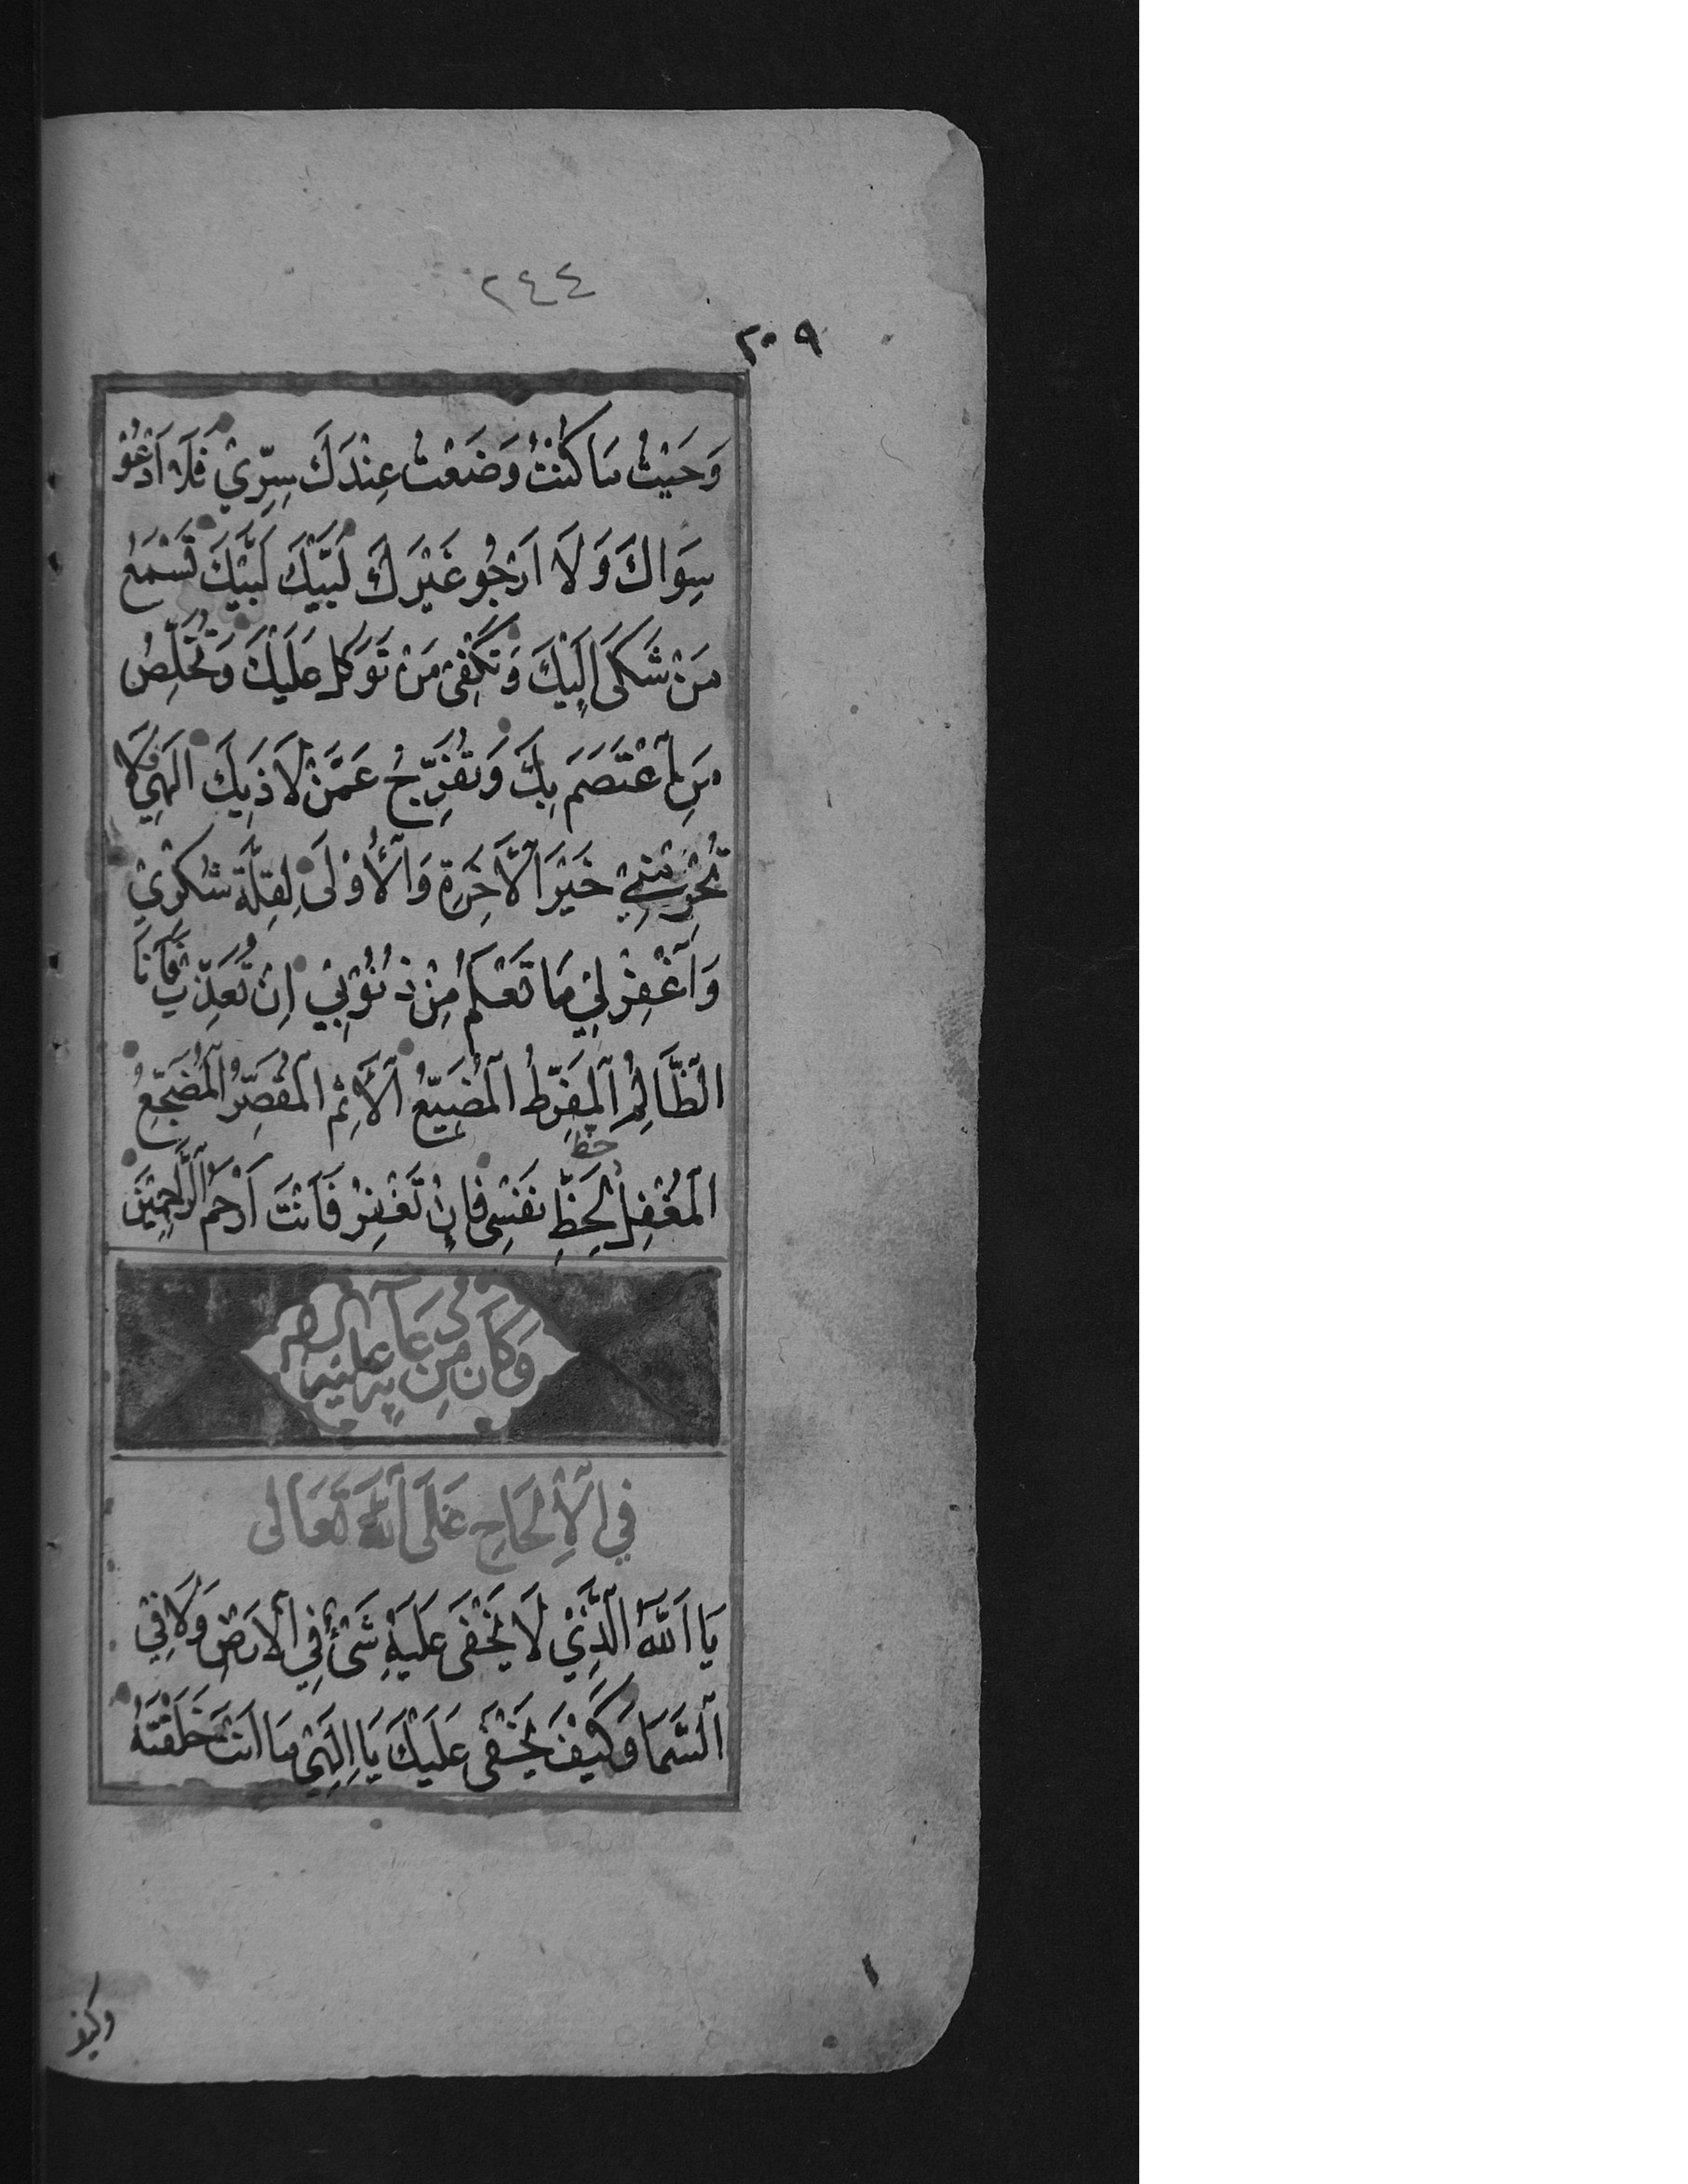 ٢٤٤
٢٠٩
وَحَيْثُ مَا كُنْتُ وَضَعْتُ عِنْدَكَ سِرِّيْ فَلَا اَدْعُوْ
سِوَاكَ وَلَا اَرْجُو غَيْرَكَ لَبَّيْكَ لَبَّيْكَ تَسْمَعُ
مَنْ شَكَى اِلَيْكَ وَتَكْفِيْ مَنْ تَوَكَّلَ عَلَيْكَ وَتُخَلِّصُ
مَنِ اعْتَصَمَ بِكَ وَتُفَرِّجُ عَمَّنْ لَاذَ بِكَ اِلٰهِيْ فَلَا
تَحْرِمْنِيْ خَيْرَ الْاٰخِرَةِ وَالْأُوْلَى لِقِلَّةِ شُكْرِيْ
وَاغْفِرْ لِيْ مَا تَعْلَمُ مِنْ ذُنُوْبِيْ اِنْ تُعَذِّبْ فَاَنَا
الظَّالِمُ الْمُفَرِّطُ الْمُضَيِّعُ الْاٰثِمُ الْمُقَصِّرُ الْمُضَجِّعُ
حظ
الْمُغْفِلُ لِحَظِّ نَفْسِيْ فَاِنْ تَغْفِرْ فَاَنْتَ اَرْحَمُ الرَّاحِمِيْنَ
وَكَانَ مِنْ دُعَآئِهِ عَلَيْهِ
فِي الْإِلْحَاحِ عَلَى اللهِ تَعَالى
يَا اَللهُ الَّذِيْ لَا يَخْفَى عَلَيْهِ شَيْءٌ فِي الْاَرْضِ وَلَا فِيْ
السَّمَا وَكَيْفَ يَخْفَى عَلَيْكَ يَا اِلٰهِيْ مَا اَنْتَ خَلَقْتَهُ
وكيف